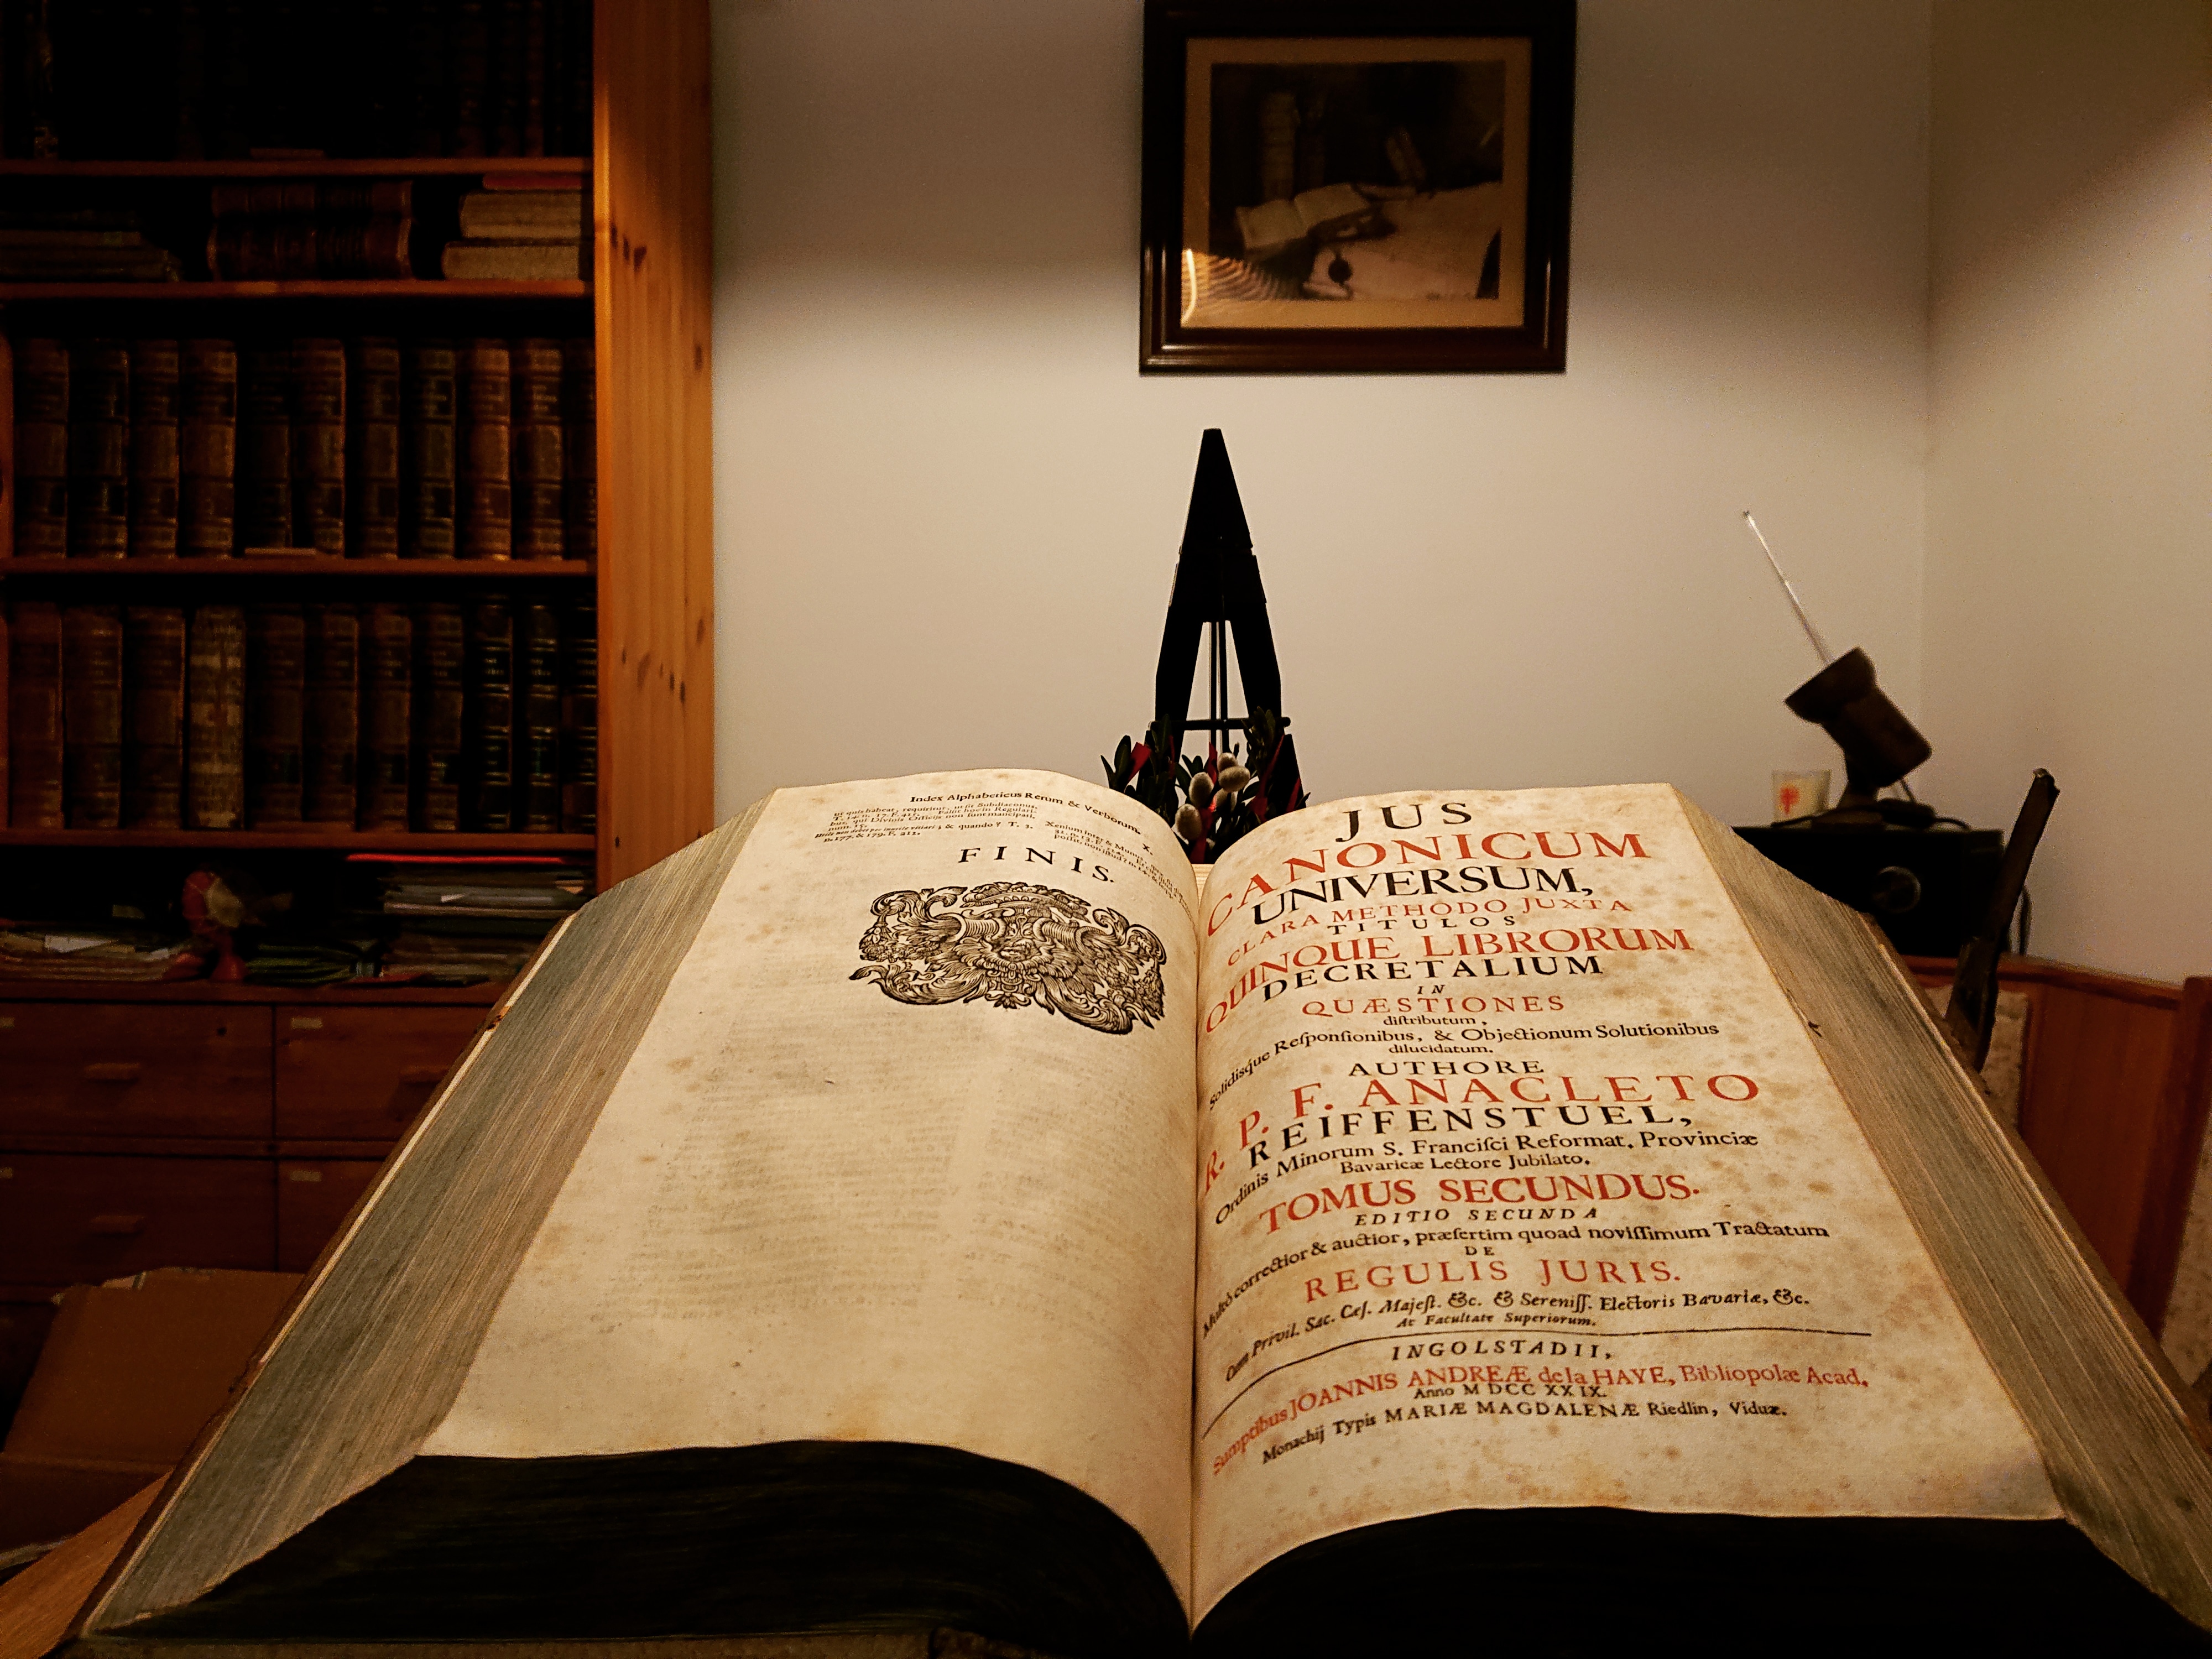 Index Alphabeticus Rerum & Verborum.
X.
FINIS.
JUS
CANONICUM
UNIVERSUM,
CLARA METHODO JUXTA
TITULOS
QUINQUE LIBRORUM
DECRETALIUM
IN
QUÆSTIONES
diſtributum,
Solidisque Reſponſionibus, & Objectionum Solutionibus
dilucidatum.
AUTHORE
R. P. F. ANACLETO
REIFFENSTUEL,
Ordinis Minorum S. Franciſci Reformat. Provinciæ
Bavaricæ Lectore Jubilato.
TOMUS SECUNDUS.
EDITIO SECUNDA
Multò correctior & auctior, præſertim quoad noviſſimum Tractatum
DE
REGULIS JURIS.
Cum Privil. Sac. Cæſ. Majeſt. &c. & Sereniſſ. Electoris Bavariæ, &c.
Ac Facultate Superiorum.
INGOLSTADII,
Sumptibus JOANNIS ANDREÆ de la HAYE, Bibliopolæ Acad.
Anno M DCC XXIX.
Monachij Typis MARIÆ MAGDALENÆ Riedlin, Viduæ.